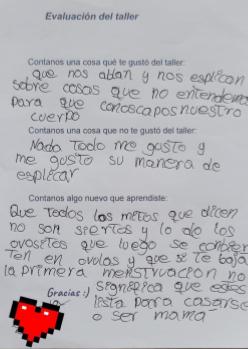 Evaluación del taller
Contanos una cosa qué te gustó del taller:
que nos ablan y nos esplican
sobre cosas que no entendemo
para que conoscamos nuestro
cuerpo
Contanos una cosa que no te gustó del taller:
Nada Todo me gusto y
me gusto su manera de
esplicar
Contanos algo nuevo que aprendiste:
Que todos los mitos que dicen
no son siertos y lo de los
ovositos que luego se convier
ten en ovulos y que si te baja
la primera menstruación no
significa que estes
Gracias :)
lista para casarse
o ser mama